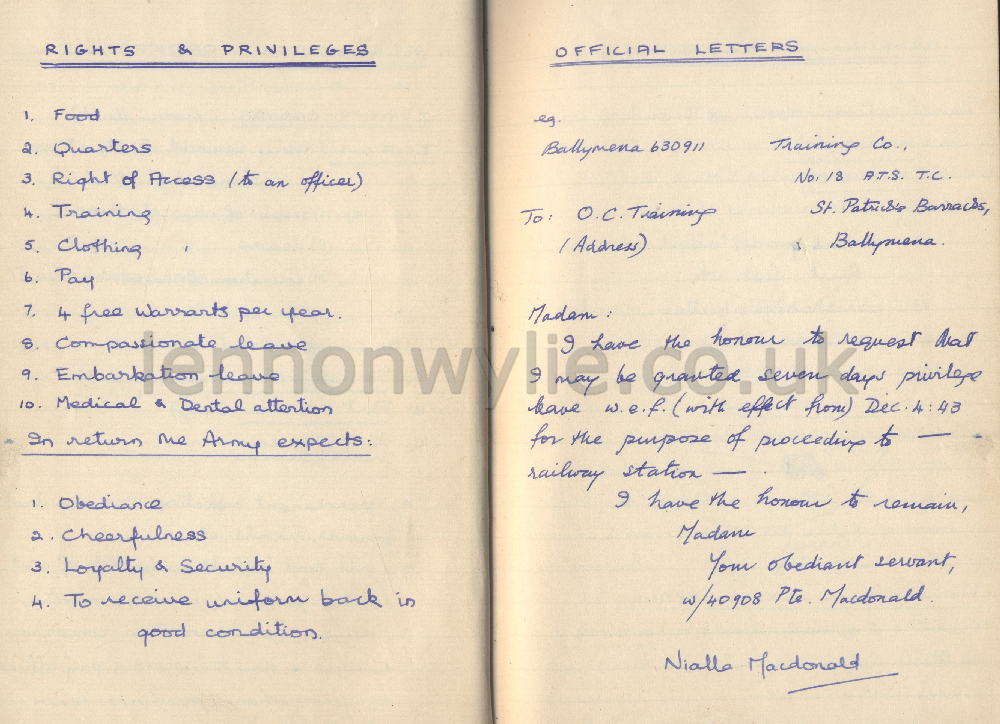 RIGHTS & PRIVILEGES
1. Food
2. Quarters
3. Right of Access (to an officer)
4. Training
5. Clothing
6. Pay
7. 4 free warrants per year.
8. Compassionate leave
9. Embarkation leave
10. Medical & Dental attention
In return the Army expects:
1. Obediance
2. Cheerfulness
3. Loyalty & Security
4. To receive uniform back in
good condition.
OFFICIAL LETTERS
eg.
Ballymena 630911 Training Co.,
No. 18 A.T.S. T.C.
To: O.C. Training St. Patrick's Barracks,
(Address) Ballymena.
Madam:
I have the honour to request that
I may be granted seven days privilege
leave w.e.f. (with effect from) Dec. 4:43
for the purpose of proceeding to —
railway station — .
I have the honour to remain,
Madam
Your obediant servant,
W/40908 Pte. Macdonald.
Nialla Macdonald
lennonwylie.co.uk